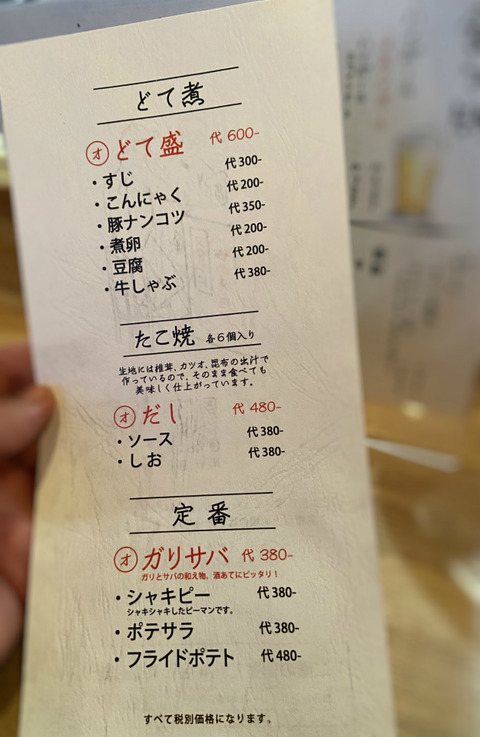 どて煮
オ どて盛 代 600-
・すじ 代 300-
・こんにゃく 代 200-
・豚ナンコツ 代 350-
・煮卵 代 200-
・豆腐 代 200-
・牛しゃぶ 代 380-
たこ焼 各6個入り
生地には椎茸、カツオ、昆布の出汁で
作っているので、そのまま食べても
美味しく仕上がっています。
オ だし 代 480-
・ソース 代 380-
・しお 代 380-
定番
オ ガリサバ 代 380-
ガリとサバの和え物。酒あてにピッタリ!
・シャキピー 代 380-
シャキシャキしたピーマンです。
・ポテサラ 代 380-
・フライドポテト 代 480-
すべて税別価格になります。